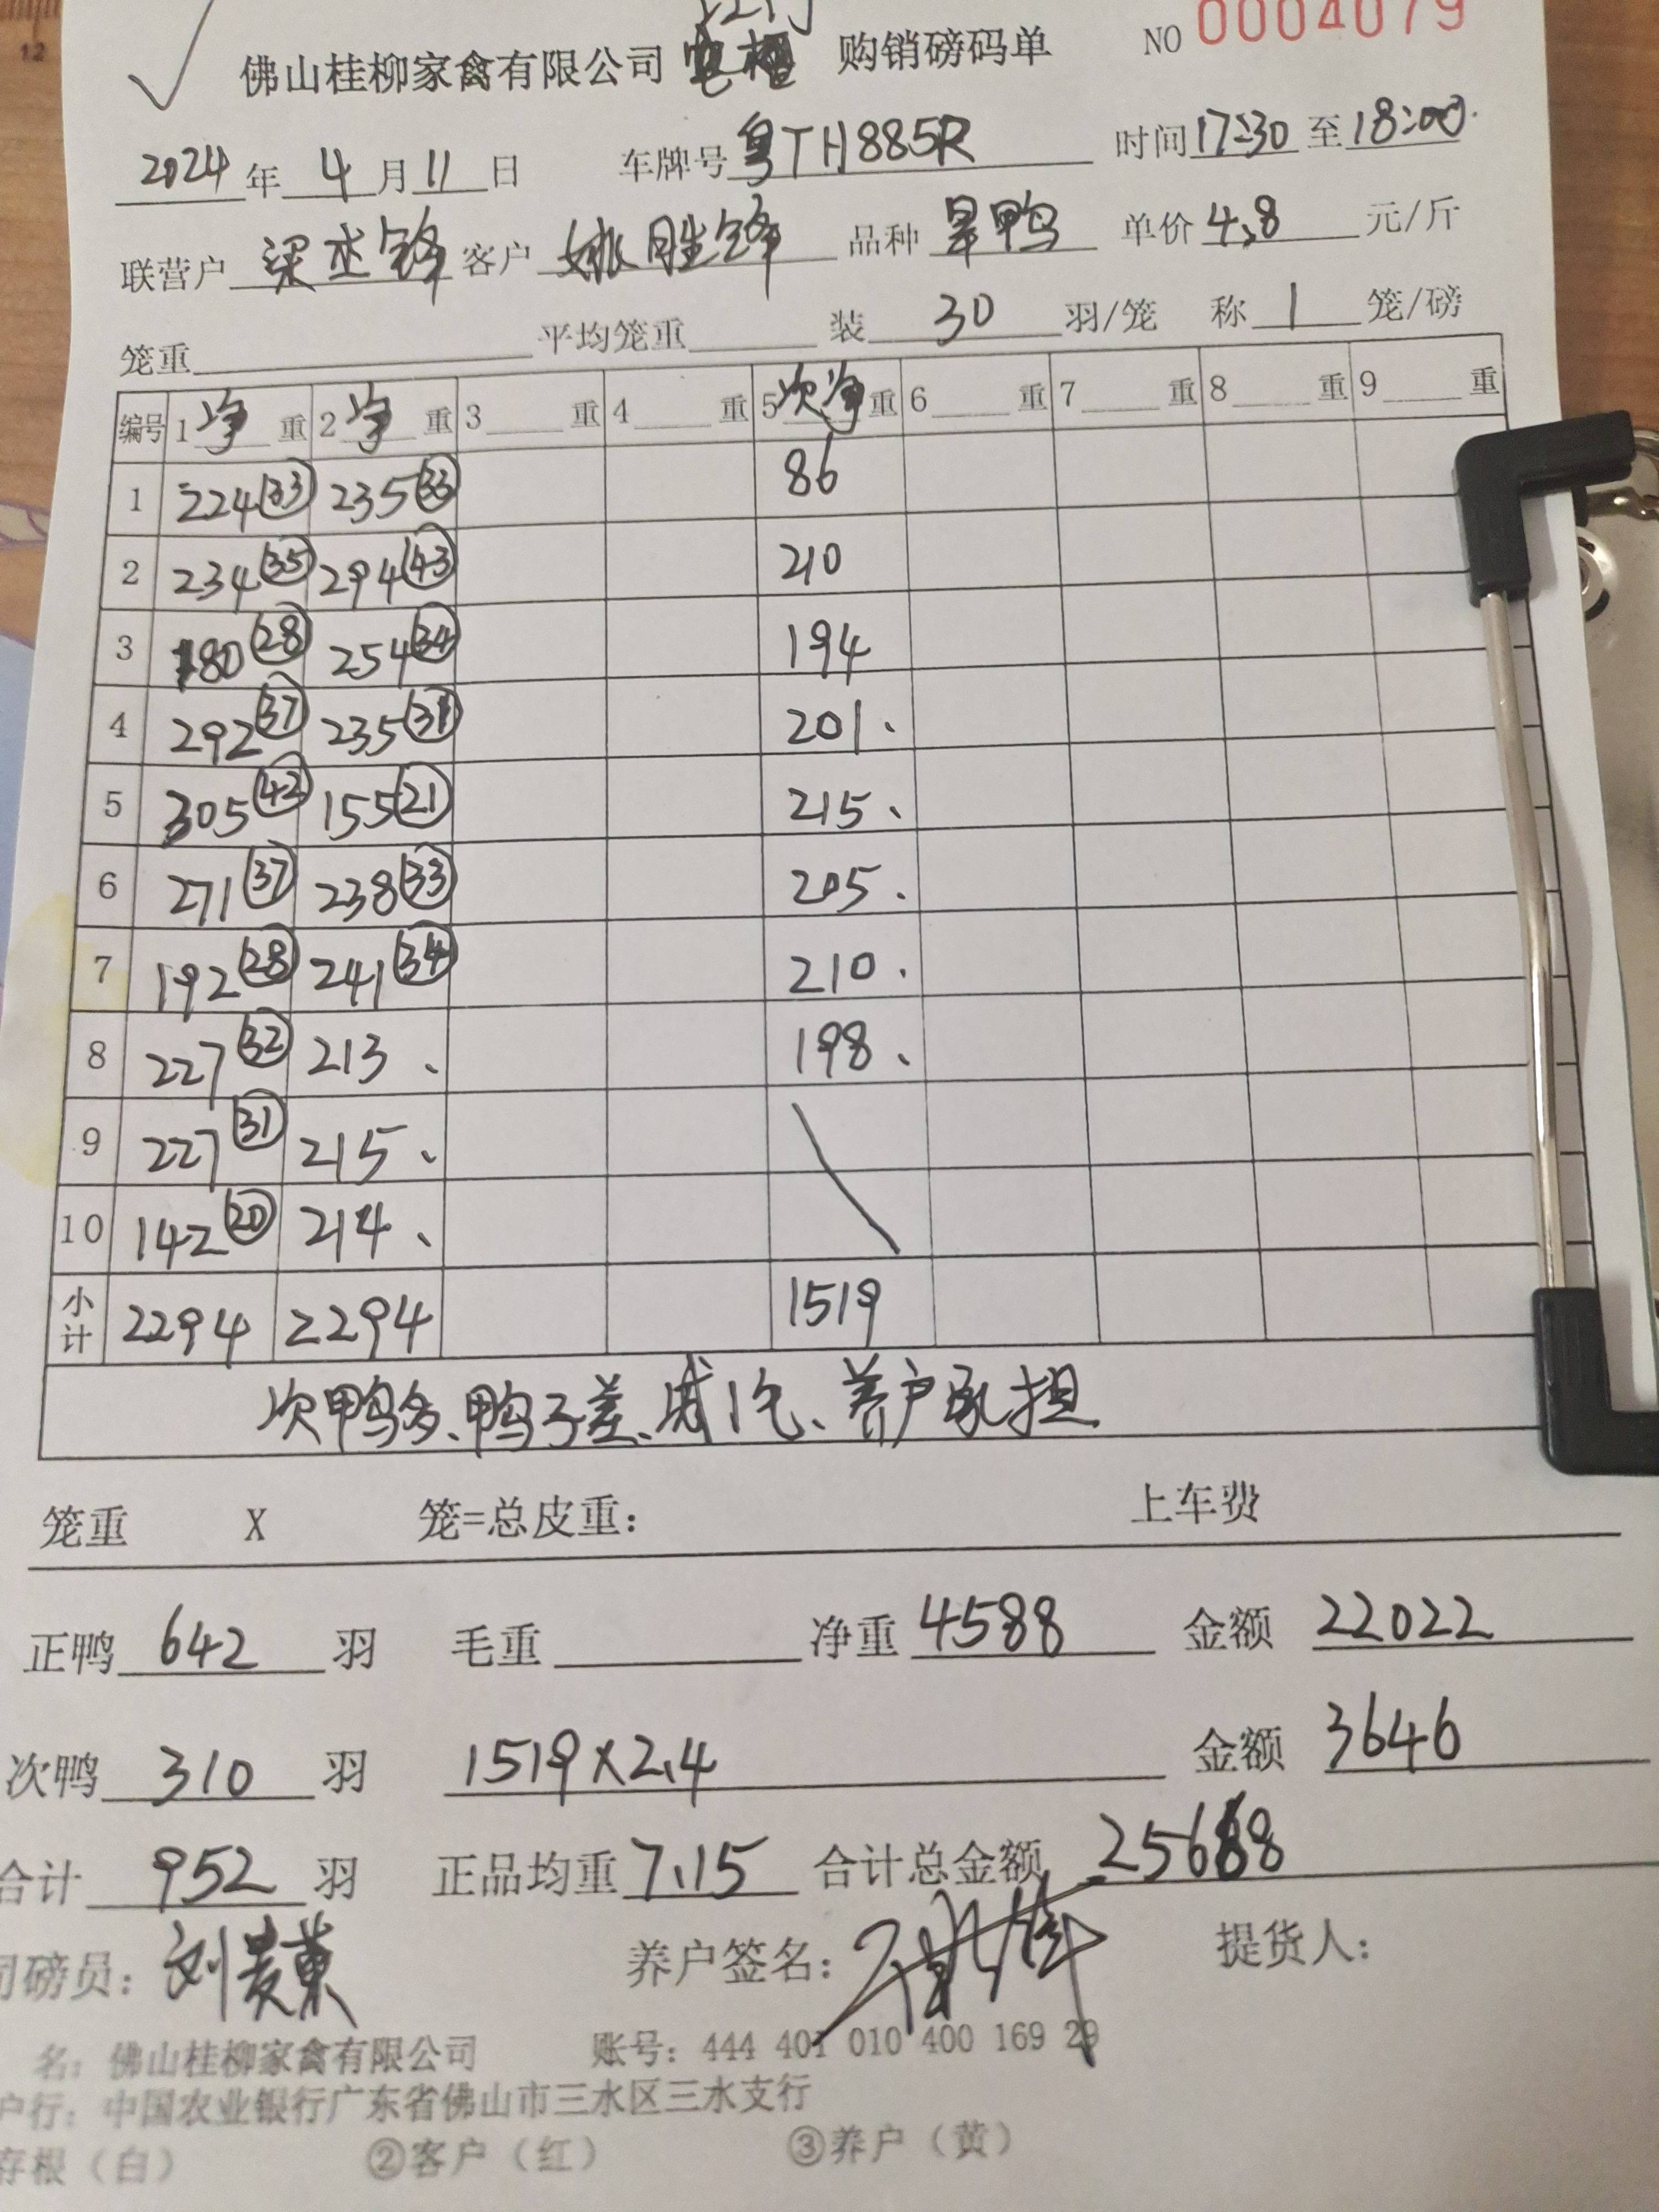 佛山桂柳家禽有限公司 购销磅码单 NO 0004079
2024年4月11日 车牌号 粤TH885R 时间 17:30 至 18:00
联营户 梁丕锋 客户 姚胜锋 品种 旱鸭 单价 4.8 元/斤
笼重 平均笼重 装 30 羽/笼 称 1 笼/磅
编号 1 净 重 2 净 重 3 重 4 重 5 次净 重 6 重 7 重 8 重 9 重
1 224 33 235 33 86
2 234 35 294 43 210
3 180 28 254 34 194
4 292 37 235 31 201.
5 305 42 155 21 215、
6 271 37 238 33 205.
7 192 28 241 34 210.
8 227 32 213、 198、
9 227 31 215、
10 142 20 214、
小计 2294 2294 1519
次鸭多、鸭子差、减1毛、养户承担
笼重 X 笼=总皮重: 上车费
正鸭 642 羽 毛重 净重 4588 金额 22022
次鸭 310 羽 1519×2.4 金额 3646
合计 952 羽 正品均重 7.15 合计总金额 25668
司磅员: 刘贵 养户签名: 提货人:
名: 佛山桂柳家禽有限公司 账号: 444 401 010 400 169 29
户行: 中国农业银行广东省佛山市三水区三水支行
存根(白) ②客户(红) ③养户(黄)